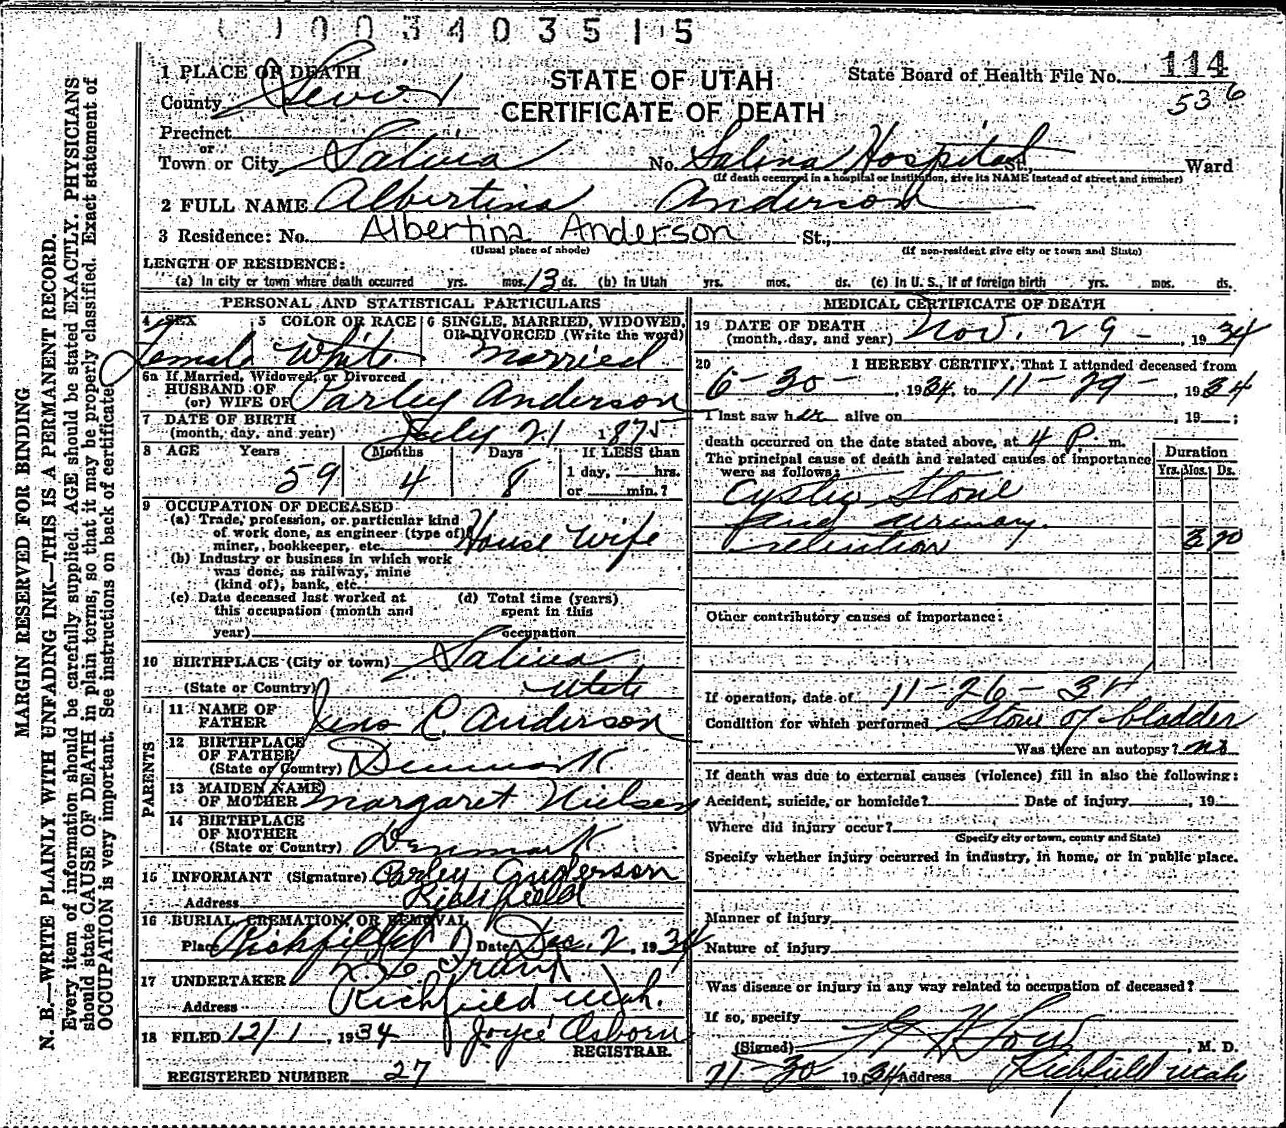 1 0 0 3 4 0 3 5 1 5
1 PLACE OF DEATH
County Sevier
STATE OF UTAH
CERTIFICATE OF DEATH
State Board of Health File No. 114
536
Precinct
or
Town or City Salina No. Salina Hospital St., Ward
(If death occurred in a hospital or institution, give its NAME instead of street and number)
2 FULL NAME Albertina Anderson
3 Residence: No. Albertina Anderson St.,
(Usual place of abode) (If non-resident give city or town and State)
LENGTH OF RESIDENCE:
(a) In city or town where death occurred yrs. mos. 13 ds. (b) In Utah yrs. mos. ds. (c) In U. S., if of foreign birth yrs. mos. ds.
PERSONAL AND STATISTICAL PARTICULARS
4 SEX 5 COLOR OR RACE 6 SINGLE, MARRIED, WIDOWED, OR DIVORCED (Write the word)
Female White Married
6a If Married, Widowed, or Divorced
HUSBAND OF
(or) WIFE OF Parley Anderson
7 DATE OF BIRTH
(month, day, and year) July 21 1875
8 AGE Years Months Days If LESS than
1 day, hrs.
or min.?
59 4 8
9 OCCUPATION OF DECEASED
(a) Trade, profession, or particular kind
of work done, as engineer (type of)
miner, bookkeeper, etc. House Wife
(b) Industry or business in which work
was done, as railway, mine
(kind of), bank, etc.
(c) Date deceased last worked at
this occupation (month and
year)
(d) Total time (years)
spent in this
occupation
10 BIRTHPLACE (City or town) Salina
(State or Country) Utah
PARENTS
11 NAME OF
FATHER Jens C. Anderson
12 BIRTHPLACE
OF FATHER
(State or Country) Denmark
13 MAIDEN NAME
OF MOTHER Margaret Nielsen
14 BIRTHPLACE
OF MOTHER
(State or Country) Denmark
15 INFORMANT (Signature) Parley Anderson
Address Richfield
16 BURIAL, CREMATION, OR REMOVAL
Place Richfield Date Dec. 2, 1934
17 UNDERTAKER
Address Richfield Utah.
18 FILED 12/1, 1934 Joyce Osborn
REGISTRAR.
REGISTERED NUMBER 27
MEDICAL CERTIFICATE OF DEATH
19 DATE OF DEATH
(month, day, and year) Nov. 29 - , 1934
20 I HEREBY CERTIFY, That I attended deceased from
6-30- , 1934, to 11-29- , 1934
I last saw her alive on , 19 ;
death occurred on the date stated above, at 4 P. m.
The principal cause of death and related causes of importance
were as follows:
Duration
Yrs. Mos. Ds.
Stone
and urinary
retention 3 20
Other contributory causes of importance:
If operation, date of 11-26-34
Condition for which performed Stone of bladder
Was there an autopsy? no
If death was due to external causes (violence) fill in also the following:
Accident, suicide, or homicide? Date of injury , 19
Where did injury occur?
(Specify city or town, county and State)
Specify whether injury occurred in industry, in home, or in public place.
Manner of injury
Nature of injury
Was disease or injury in any way related to occupation of deceased?
If so, specify
(Signed) , M. D.
11-30 1934 Address Richfield Utah
MARGIN RESERVED FOR BINDING
N. B.—WRITE PLAINLY WITH UNFADING INK—THIS IS A PERMANENT RECORD.
Every item of information should be carefully supplied. AGE should be stated EXACTLY. PHYSICIANS
should state CAUSE OF DEATH in plain terms, so that it may be properly classified. Exact statement of
OCCUPATION is very important. See instructions on back of certificate.